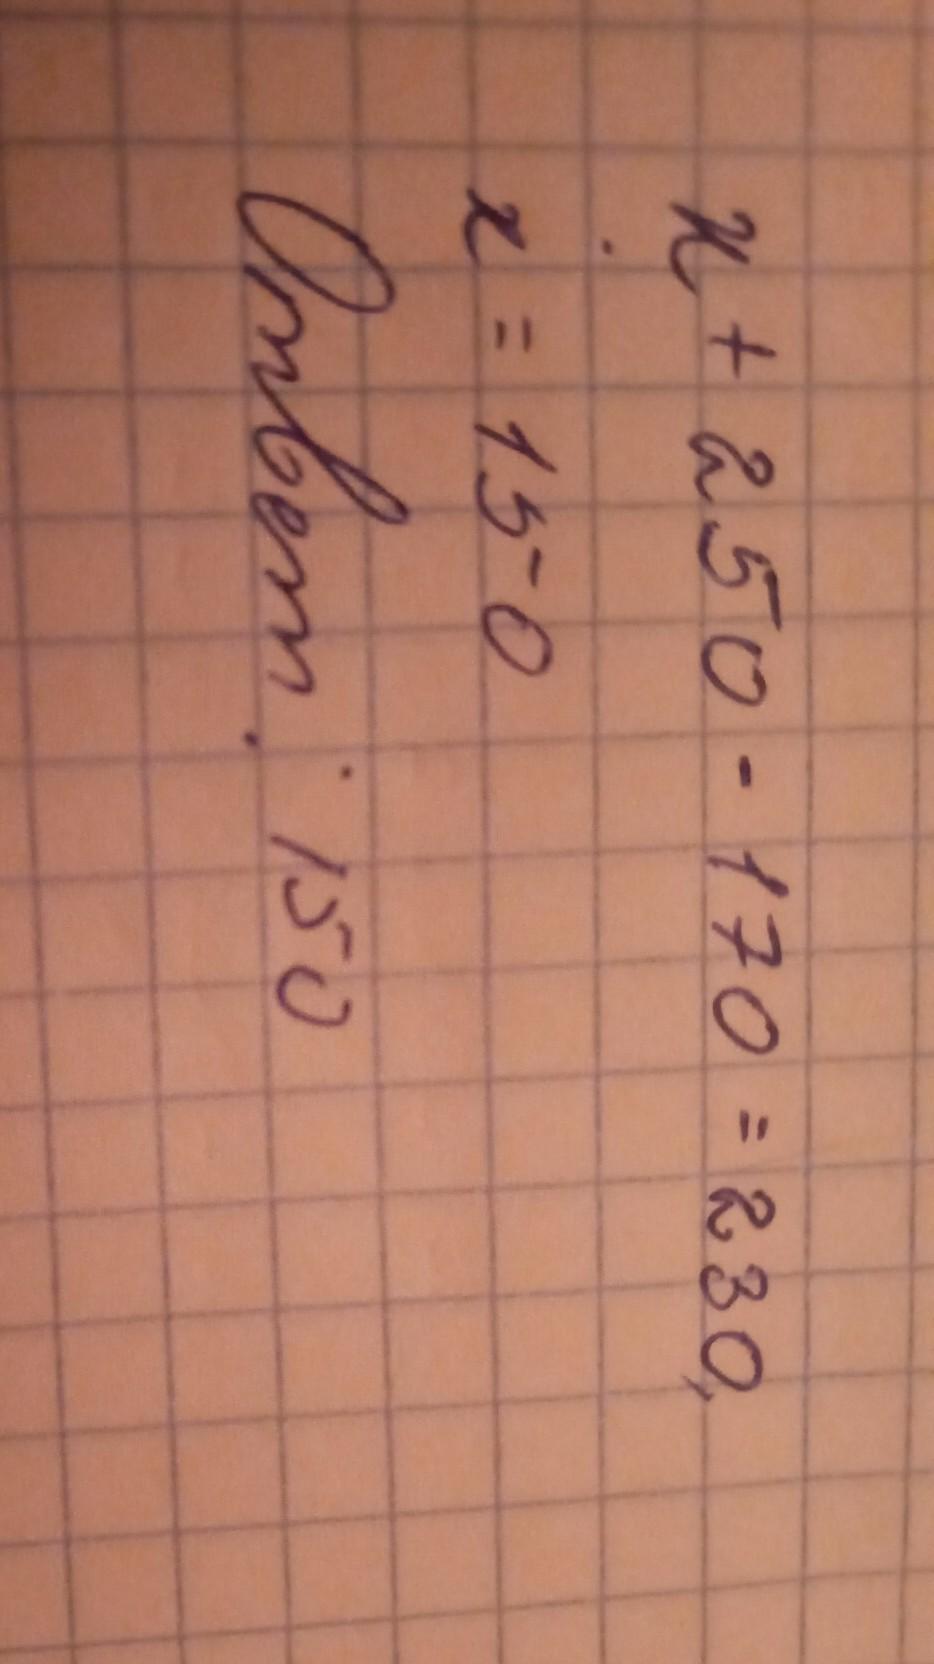 x + 250 - 170 = 230,
x = 150
Ответ: 150